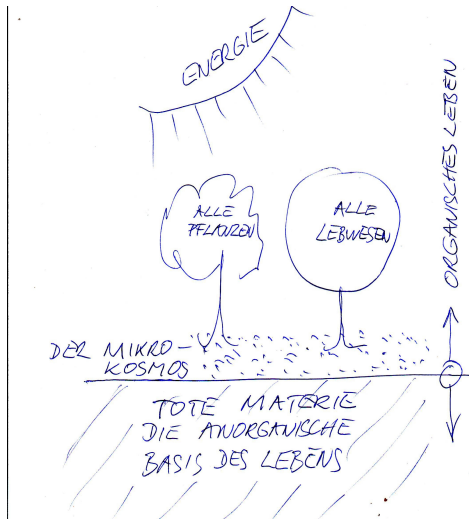 ENERGIE
ALLE
PFLANZEN
ALLE
LEBWESEN
ORGANISCHES LEBEN
DER MIKRO-
KOSMOS
TOTE MATERIE
DIE ANORGANISCHE
BASIS DES LEBENS